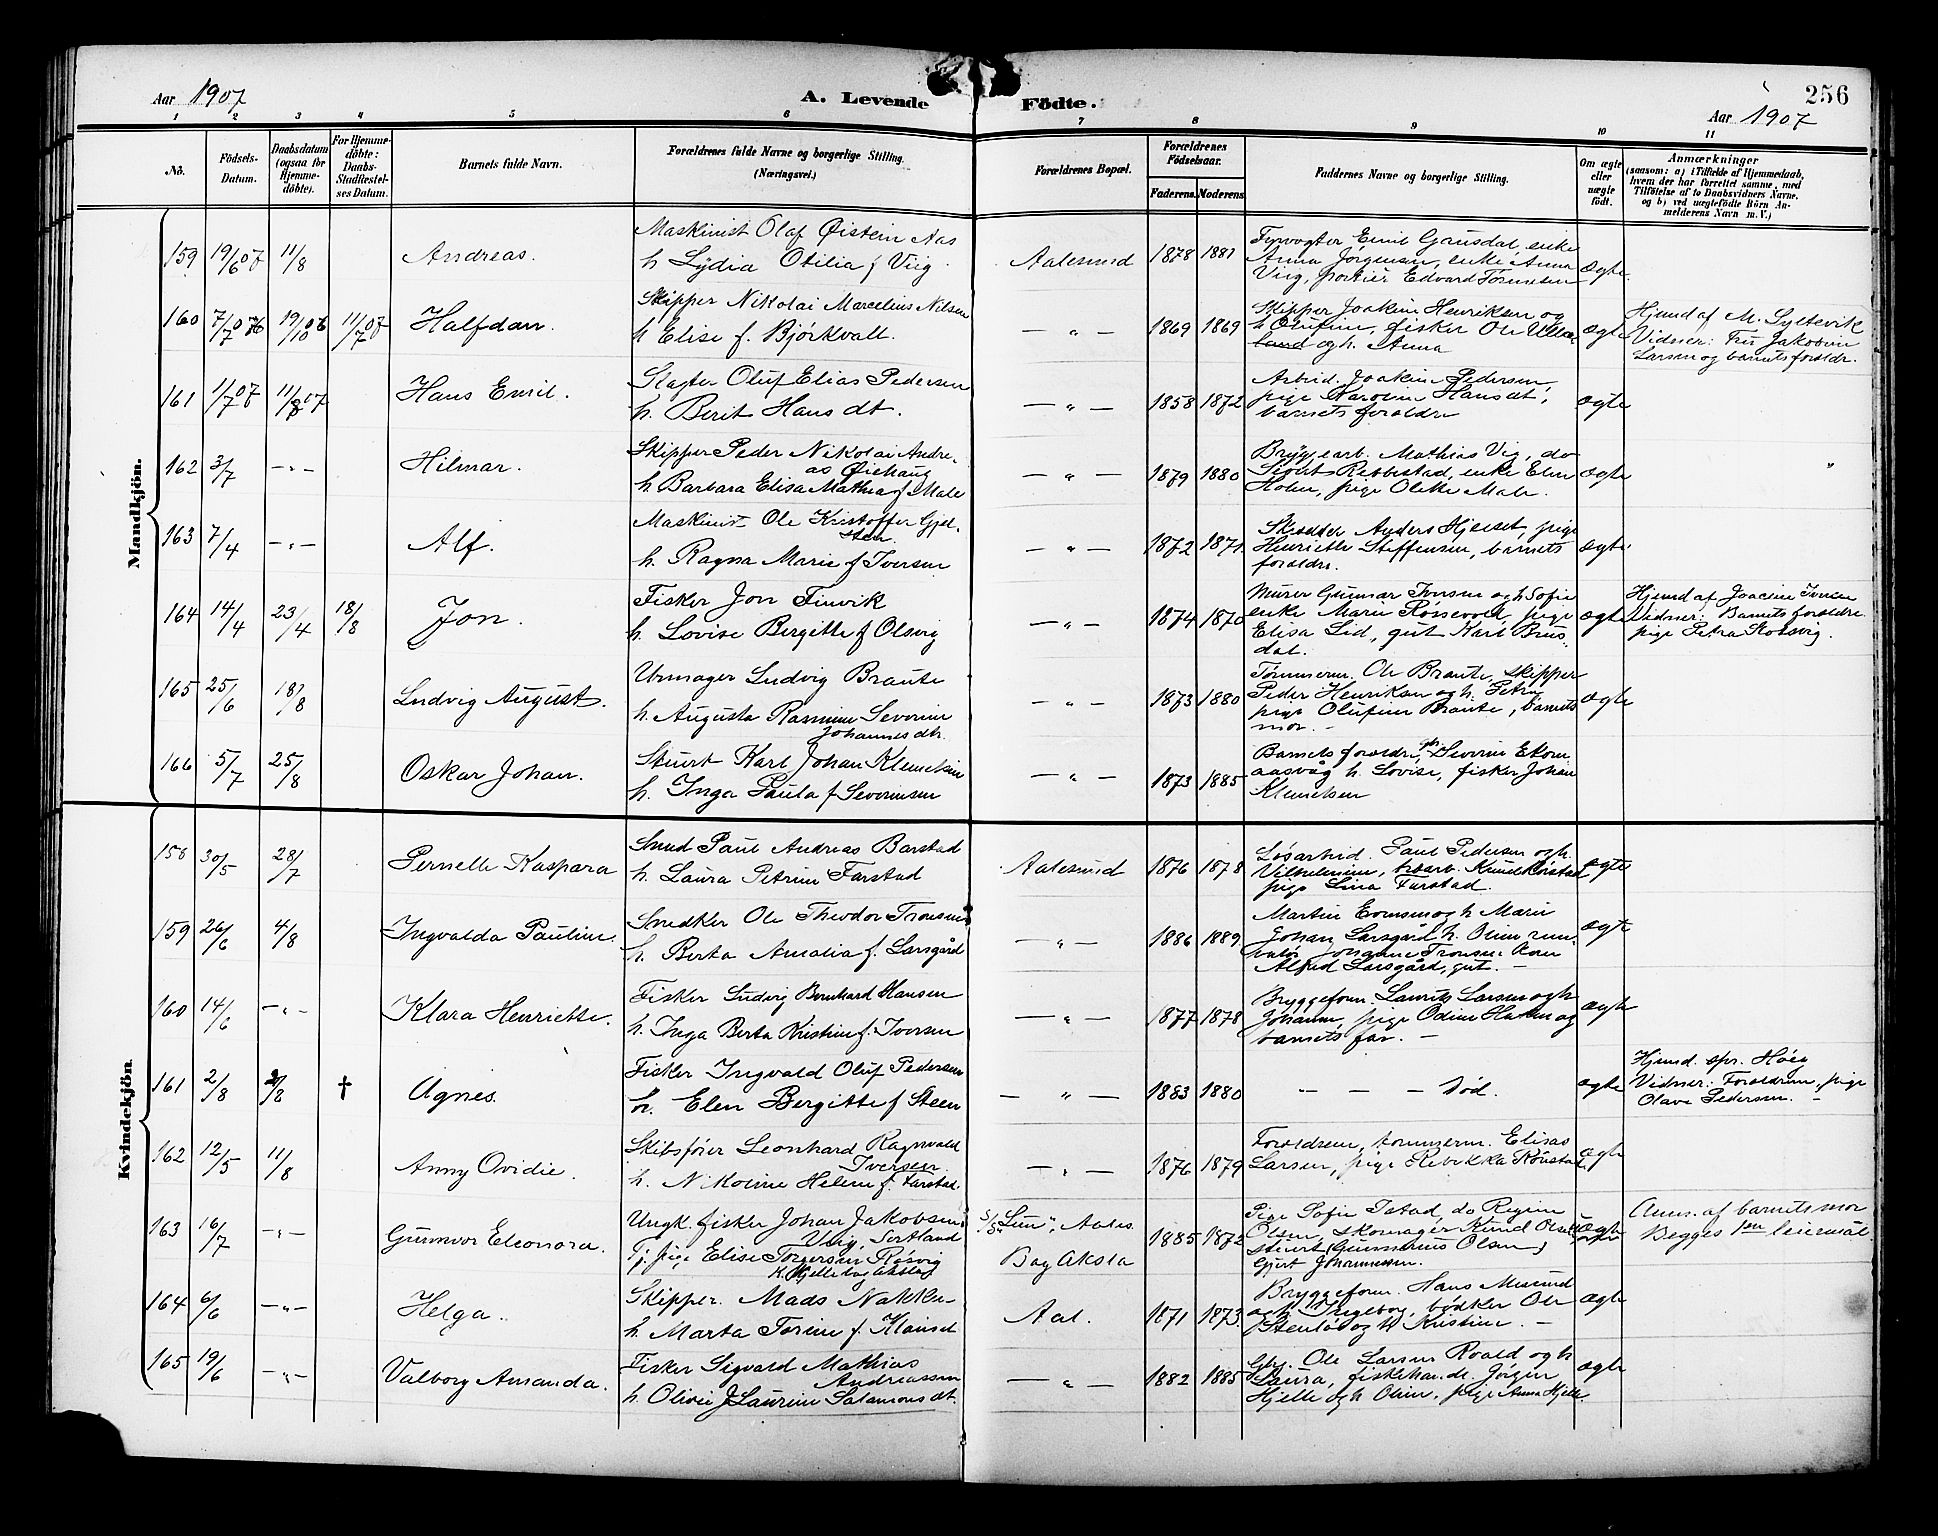 256
Aar 1907 A. Levende Födte. Aar 1907
1 2 3 4 5 6 7 8 9 10 11
No. Födsels-Datum. Daabsdatum (ogsaa for Hjemmedöbte). For Hjemmedöbte: Daabs-Stadfæstelses Datum. Barnets fulde Navn. Forældrenes fulde Navne og borgerlige Stilling. (Næringsvei.) Forældrenes Bopæl. Forældrenes Födselsaar. Faderens. Moderens. Faddernes Navne og borgerlige Stilling. Om ægte eller uægte födt. Anmærkninger (saasom: a) i Tilfælde af Hjemmedaab, hvem der har forrettet samme, med Tilföielse af to Daabsvidners Navne. og b) ved uægtefödte Börn Anmelderens Navn m. V.)
Mandkjön.
159 19/6 07 11/8 Andreas. Maskinist Olaf Øistein Aas
h Lydia Otilia f Viig Aalesund 1878 1881 Fyrvogter Emil Gausdal, enke
Anna Jörgensen, enke Anna
Viig, portier Edvard ægte.
160 7/7 07 19/10 11/7 07 Halfdan. Skipper Nikolai Marcelius Nilsen
h Elise f. Bjørkvall. — " — 1869 1869 Skipper Joakim Henriksen og
h Olufine, fisker Ole
land og h. Anna ægte Hjemd af M. Syltevik
Vidner: Fru Jakobine
Larsen og barnets foræld.
161 1/7 07 11/8 07 Hans Emil. Slagter Oluf Elias Pedersen
h. Berit Hans dt. — " — 1858 1872 Arbeid. Joakim Pedersen,
pige Karoline Hans dt,
barnets forældre ægte
162 3/7 — " — Hilmar. Skipper Peder Nikolai Andre-
as Øiehaug
h. Barbara Elisa Mathea f Male — " — 1879 1880 Bryggearb. Mathias Vig, do
Sivert Rebbestad, enke Elen
Holm, pige Oletta Male. ægte
163 7/4 — " — Alf. Maskinist Ole Kristoffer Gjel-
sten
h. Ragna Marie f Iversen — " — 1872 1871 Skrædder Anders Hjelset, pige
Henriette Steffensen, barnets
forældre. ægte.
164 14/4 23/4 18/8 Jon. Fisker Jon Finvik
h. Lovise Bergitte f Olsvig — " — 1874 1870 Murer Gunnar Ivarsen og h Sofie
enke Marie Røssevold, pige
Elisa Lid, gut Karl Brus
dal. ægte Hjemd af Joacim
Vidner: Barnets forældre
pige Petra
165 25/6 18/8 Ludvig August. Urmager Ludvig Braute
h. Augusta Rasmine Severine
Johannes dtr. — " — 1873 1880 Tømmerm. Ole Braute, skipper
Peder Henriksen og h. Petra,
pige Olufine Braute, barnets
mor. — ægte
166 5/7 25/8 Oskar Johan. Stuert Karl Johan Klemetsen
h. Inga Paula f Severinsen — " — 1873 1885 Barnets forældre, Severin
aasvåg h. Lovise, fisker Johan
Klemetsen
Kvindekjön
158 30/5 28/7 Pernelle Kaspara Smed Paul Andreas Barstad
h. Laura Petrine Farstad Aalesund 1876 1878 Løsarbeid. Paul Pedersen og h.
Vilhelmine, Knud
pige Lina Farstad. ægte
159 26/6 4/8 Ingvalda Pauline. Snedker Ole Theodor Tronsen
h. Berta Amalia f. Larsgård — " — 1886 1889. Martin og h Marie
Johan Larsgård h. Oline
Johanne Tronsen
Alfred Larsgård, gut. — ægte
160 14/6 — " — Klara Henriette. Fisker Ludvig Bernhard Hansen
h. Inga Berta Kristine f. Iversen — " — 1877 1878 Bryggeform. Laurits Larsen og h
Johanne, pige Odine Hansen og
barnets far. — ægte
161 2/8 2/8 † Agnes. Fisker Ingvald Oluf Pedersen
h. Elen Bergitte f Steen — " — 1883 1880 — — — død. ægte Hjemd. spr. Høeg
Vidner: Forældrene, pige
Olava Pedersen. —
162 12/5 11/8 Anny Ovidie. Skibsfører Leonhard Ragnvald
Iversen
h. Nikoline Helene f. Farstad. — " — 1876 1879 Forældrene, tømmerm. Elias
Larsen, pige Rebekka Rønstad, ægte
163 16/7 — " — Gunnvor Eleonora. Ungk. fisker Johan Jakobsen
Vrig, Sortland
Tj. pige Elise Torgersen Røsvig
S/S "Sun", Aales.
Bag Aksla 1885 1872 Pige Sofie Istad, do Regine
Olsen, skomager Knud Olsen
stuert (Gunnerius Olsen)
Gjert Johannessen. Anm. af barnets mor
Begges 1ste leiermål
164 6/6 — " — Helga. Skipper. Mads Nakke-
h. Marta Torine f. Klauset Aal. 1871 1873 Bryggeform. Hans Misund
og h. Ingeborg, bødker Ole
Stenlös og h Kristine. — ægte
165 19/6 — " — Valborg Amanda. Fisker Sigvald Mathias
Andreassen
h. Olivie Laurine Salamons dt. — " — 1882 1885 Gbr. Ole Larsen Roald og h
Laura, fiskehandl. Jörgen
Hjelle og h Oline, pige Anna Hjelle ægte